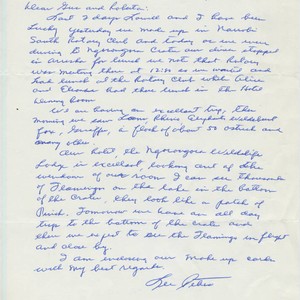 Dear Gus and Rotarians:
Last 2 days Lowell and I have been
lucky yesterday we made up in Nairobi
South Rotary Club and today on our way
driving to Ngorongoro Crater our driver stopped
in Arusha for lunch we not that Rotary
was meeting there at 12:30 so we went and
had lunch at the Rotary Club while
and had their lunch in the Hotel
dining room.
We're having an excellent trip, this
morning we saw Lions, Rhino, Elephants, Wildebeest
Fox, Giraffe, a flock of about 50 ostrich and
many other.
Our hotel the Ngorongoro Wildlife
Lodge is excellent, looking out of the
window of our room I can see thousands
of Flamingos on the lake in the bottom
of the Crater, they look like a patch of
Pink. Tomorrow we have an all day
trip to the bottom of the crater and
then we expect to see the Flamingos in flight
and close by.
I am enclosing our make up cards
with my best regards.
Lee